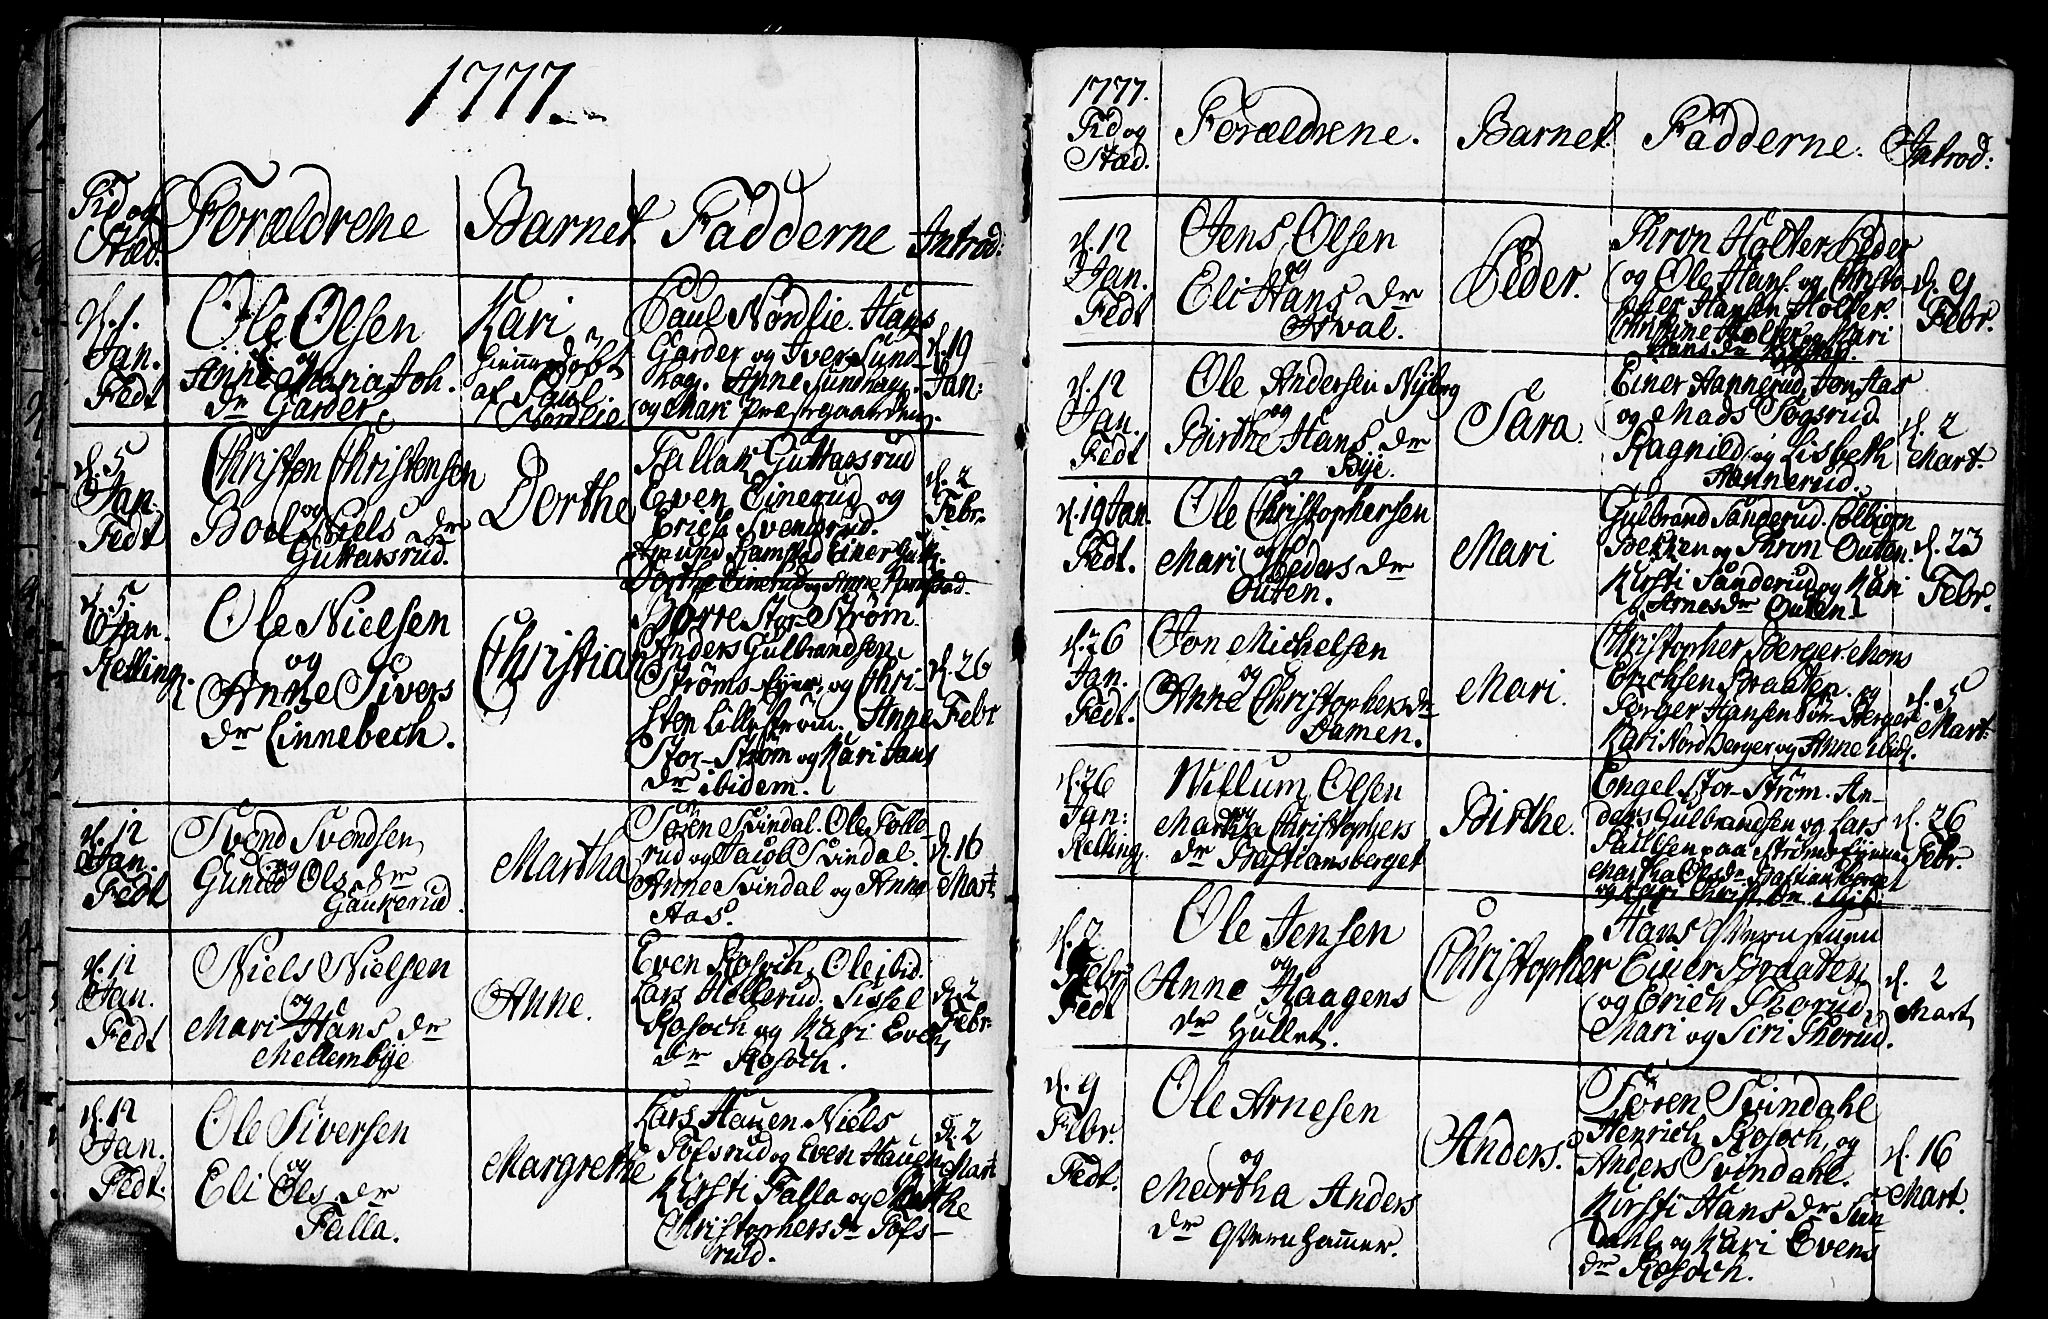 1777.
Tid og
Stæd.
Forældrene
Barnet.
Fadderne
Introd:
d. 1.
Jan.
Fedt
Ole Olsen
og
Anne Maria Joh.
dr Garder.
Kari
af Povel
Nordlie
Paul Nordlie. Hans
Garder og Iver Sund-
hag. Anne Sundhag.
og Mari Præstegaarden.
d. 19
Jan:
d. 5
Jan.
Fedt
Christen Christensen
og
Boel Niels dr
Guttersrud.
Dorthe
Tallak Guttersrud
Even Einerud og
Erich Svensrud.
Amund Ramstad Einer Gutt.
Dorthe Einerud og Anne Ramstad.
d. 2
Febr.
d. 5.
Jan.
Kelling.
Ole Nielsen
og
Anne Sivers
dr Linnebech.
Christian
Børre Stor-Strøm.
Anders Gulbrandsen
Strøms-Ejer, og Chri-
sten Lillestrøm. Anne
Stor-Strøm og Kari Jans
dr ibidem.
d. 26
Febr
d. 12
Jan.
Fedt
Svend Svendsen
og
Gunild Ols dr
Gaukerud.
Martha
Søren Svindal. Ole Tolle-
rud og Jacob Svindal.
Anne Svindal og Anne
Aas.
d. 16
Mart.
d. 12
Jan.
Fedt
Niels Nielsen
og
Mari Hans dr
Mellembye
Anne.
Even Rosoch, Ole ibid.
Lars Hellerud. Sissel
Rosoch og Kari Evens
dr Rosoch.
d. 2
Febr:
d. 12
Jan.
Fedt.
Ole Siversen
og
Eli Ols dr
Falla.
Margrethe
Lars Hauen Niels
Tofsrud og Even Hauen
Kirsti Falla og Marthe
Christophers dr Tofs-
rud.
d. 2
Mart
1777.
Tid og
Stæd.
Forældrene.
Barnet.
Fadderne.
Introd:
d. 12
Jan.
Fedt
Jens Olsen
og
Eli Hans dr
Hval.
Peder.
Thron Holter Peder
og Ole Hans. og Christo-
pher Hansen Holter.
Christine Holter og Kari
Hans dr
d. 9
Febr.
d. 12
Jan.
Fedt
Ole Andersen Nyborg
og
Birthe Hans dr
Bye.
Sara.
Einer Hannerud, Jon Aas
og Mads Søgsrud.
Ragnild og Lisbeth
Hannerud.
d. 2
Mart.
d. 19 Jan.
Fedt.
Ole Christophersen
og
Mari Peders dr
Outen.
Mari
Gulbrand Sanderud. Colbjørn
Bekken og Thron Outen.
Kirsti Sanderud og Kari
Arnes dr Outen.
d. 23
Febr.
d. 26
Jan.
Fedt.
Jon Michelsen
og
Anne Christophers dr
Damen.
Mari.
Christopher Berger. Mons
Erichsen Braaten. og
Børger Hansen Sør-Berger
Kari Nord Berger og Anne ibid.
d. 5
Mart:
d. 26
Jan:
Kelling.
Willum Olsen
og
Martha Christophers
dr Bastiansberget
Birthe.
Engel Stor-Strøm. An-
ders Gulbrandsen og Lars
Pallesen paa Strøms-Ejerne
Martha Ols dr Bastiansberget
og Kari Christ. dr
d. 26
Febr.
d. 2
Febr.
Fedt
Ole Jensen
og
Anne Haagens
dr Hullet.
Christopher
Hans Qvernstuen
Einer Braaten
og Erich Thorud,
Mari og Siri Thorud.
d. 2
Mart
d. 9
Febr.
Fedt.
Ole Arnesen
og
Martha Anders
dr Qvernhammer.
Anders.
Søren Svindahl
Henrich Rosoch, og
Anders Svindahl.
Kirsti Hans dr Svin
dahl og Kari Evens
dr Rosoch.
d. 16
Mart.